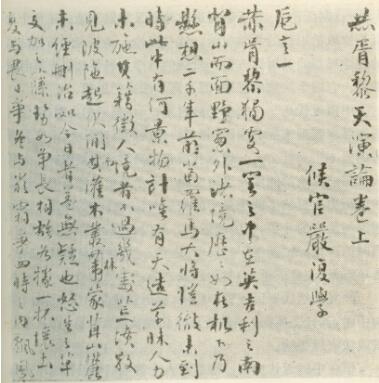 赫胥黎天演論卷上
候官嚴復學
卮言一
赫胥黎獨處一室之中在英吉利之南
背山而面野窗外諸境歷歷如在几下乃
懸想二千年前當羅馬大將愷徹未到
時此中有何景物計唯有天造草昧人力
未施其籍徵人境者不過幾處荒墳散
見坡陀起伏間而灌木叢林蒙茸山麓
未經刪治如今日者則無疑也怒生之草
交加之藤勢如爭長相雄各據一抔壤土
夏與畏日爭冬與嚴霜爭四時之內飄風